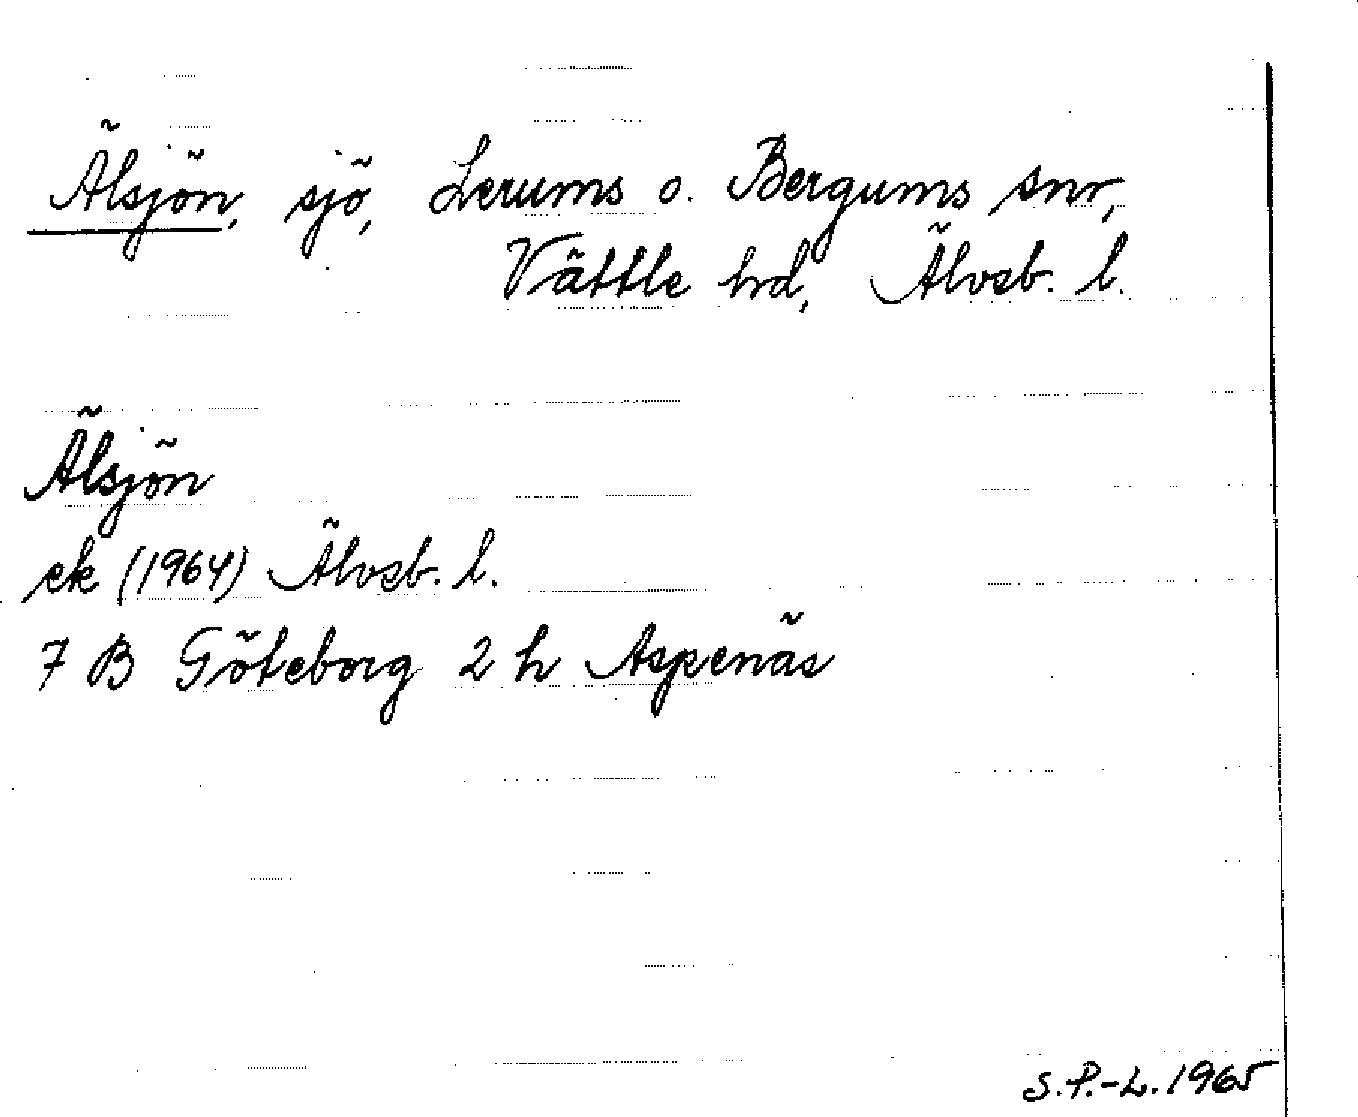 Älsjön, sjö, Lerums o. Bergums snr,
Vättle hd, Älvsb. l.
Älsjön
ek (1964) Älvsb. l.
7 B Göteborg 2 h Aspenäs
S.P.-L. 1965